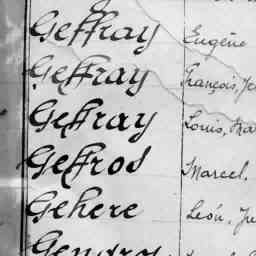 Geffray Eugène
Geffray François, Je
Geffray Louis, Ma
Geffros Marcel.
Gehere León, Je
Gendro